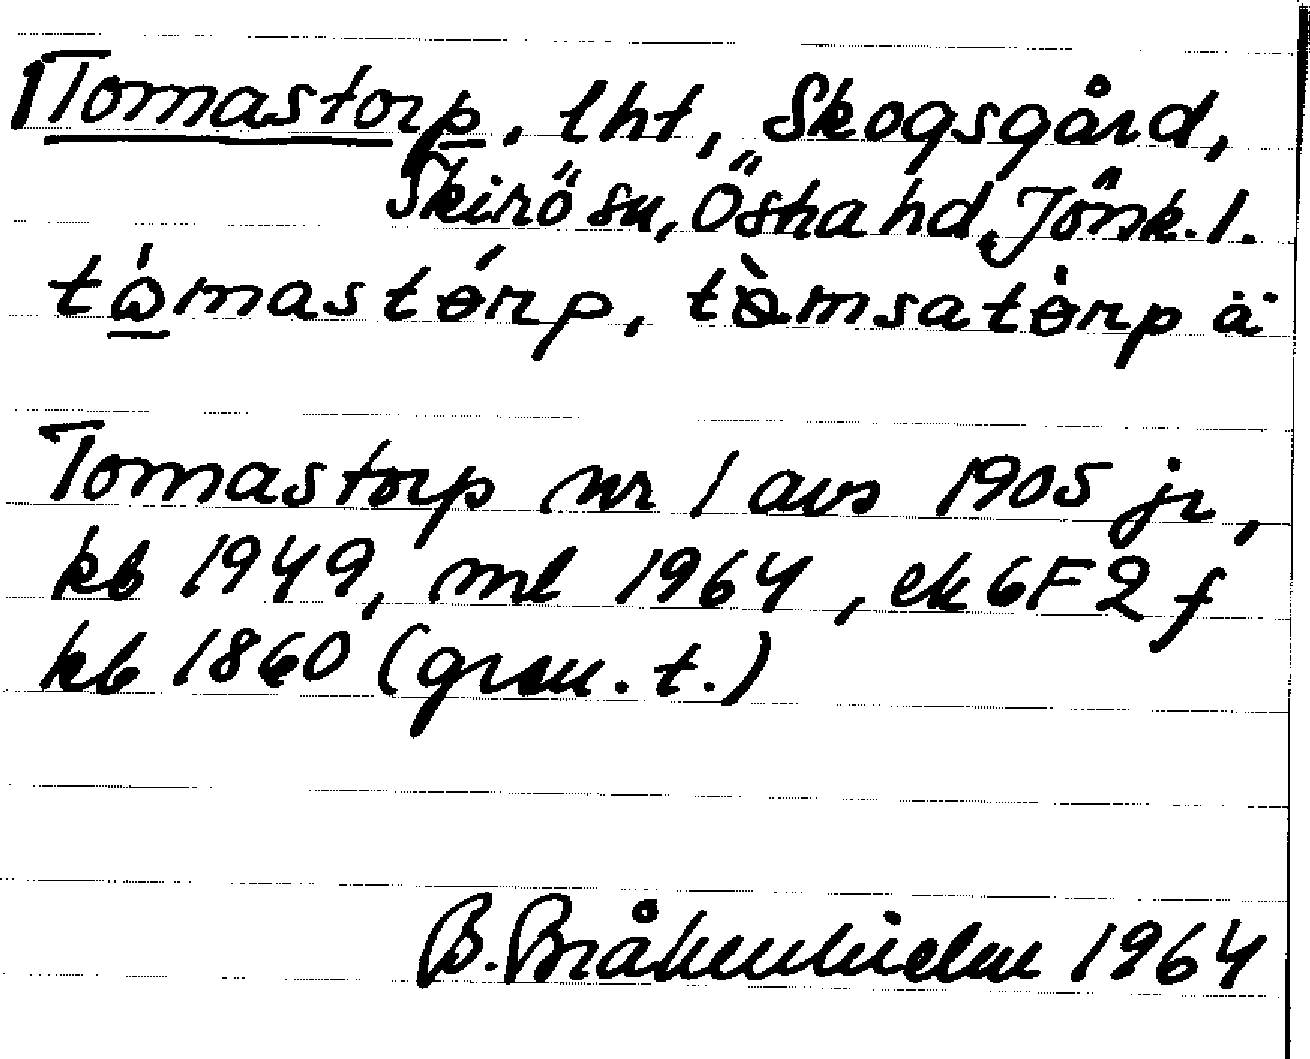 Tomastorp, lht, Skogsgård,
Skirö sn, Östra hd, Jönk. l.
tòmastórp, tòmsatòrp ä
Tomastorp nr 1 avs 1905 jr,
kb 1949, ml 1964, ek 6F2f
kb 1860 (gran. t.)
B. 1964